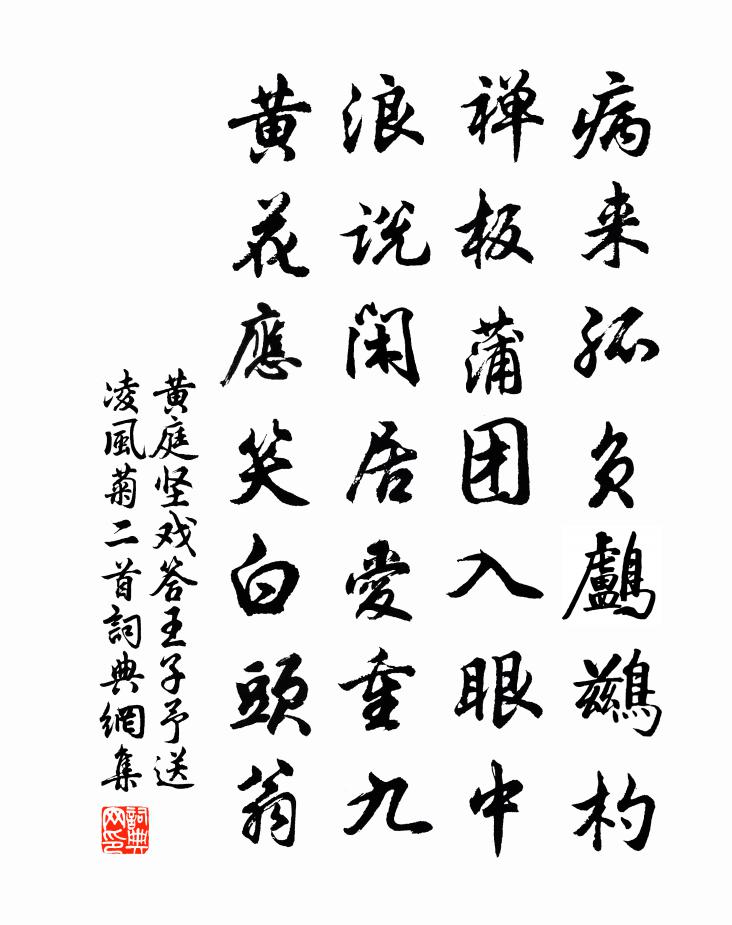 病来孤负鸕鷀杓
禅板蒲团入眼中
浪说闲居愛重九
黄花應笑白頭翁
黄庭坚戏答王子予送
凌風菊二首詞典網集
詞典網印